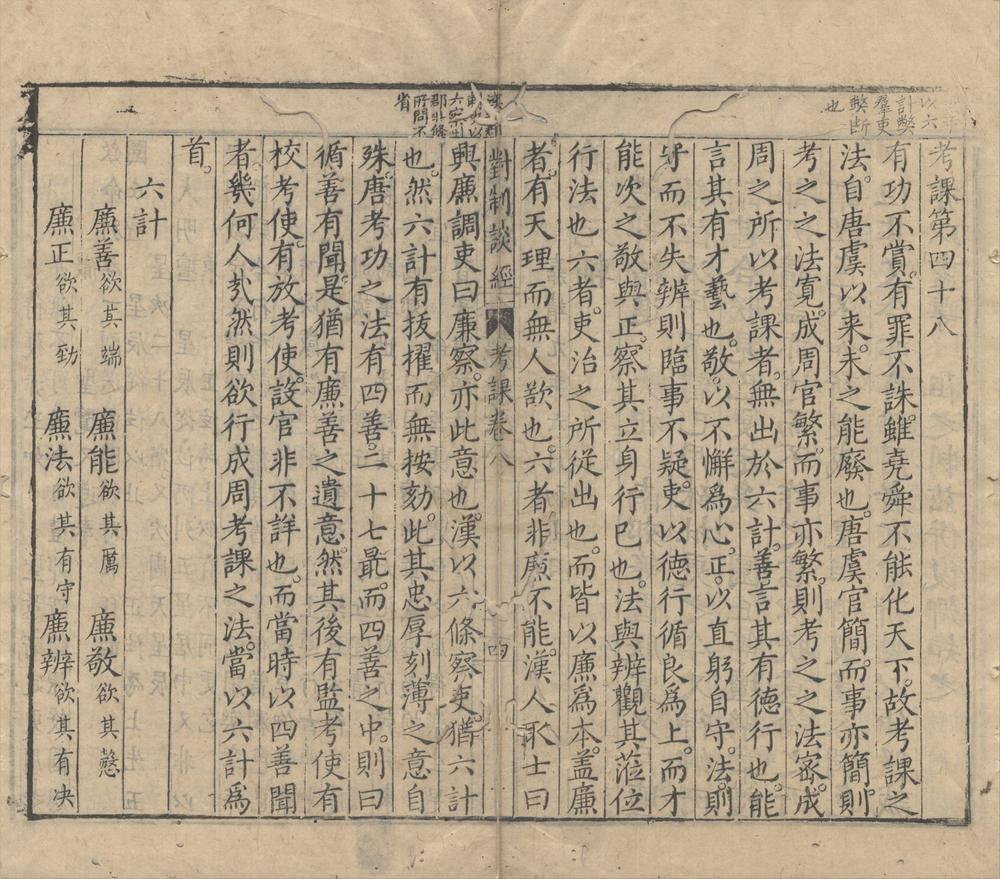 考課第四十八
有功不賞。有罪不誅。雖堯舜不能化天下。故考課之
法。自唐虞以来。未之能廢也。唐虞官簡。而事亦簡。則
考之之法寬。成周官繁。而事亦繁。則考之之法宻。成
周之所以考課者。無出於六計。善言其有德行也。能
言其有才藝也。敬。以不懈爲心。正。以直躬自守。法。則
守而不失。辨則臨事不疑。吏。以德行循良爲上。而才
能次之。敬與正。察其立身行巳也。法與辨觀其蒞位
行法也。六者。吏治之所従出也。而皆以廉爲本。盖廉
者。有天理而無人欲也。六者非廉不能。漢人取士曰
對制談經 考課卷八 四
興廉調吏曰廉察。亦此意也。漢以六條察吏。猶六計
也。然六計有拔擢而無按劾。此其忠厚刻薄之意自
殊。唐考功之法。有四善。二十七最。而四善之中。則曰
循善有聞。是猶有廉善之遺意。然其後有監考使有
校考使。有放考使。設官非不詳也。而當時以四善聞
者。幾何人㦲。然則欲行成周考課之法。當以六計爲
首。
六計
廉善欲其端 廉能欲其厲 廉敬欲其慤
廉正欲其勁 廉法欲其有守 廉辨欲其有决
以六
計弊
羣吏
弊断
也
六条
郡非條
所問不
省